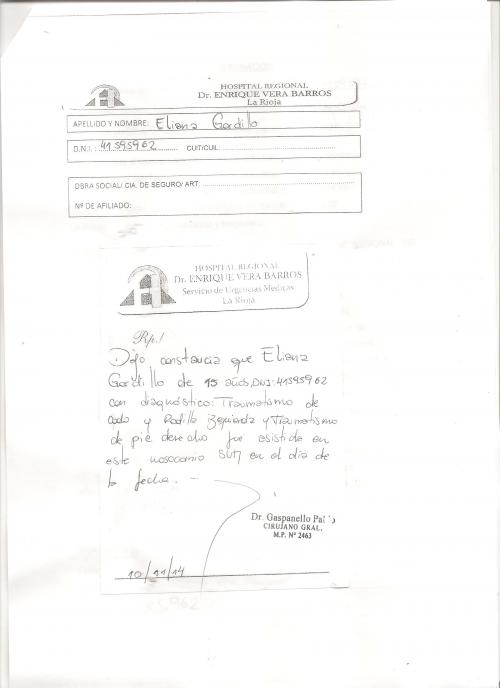 HOSPITAL REGIONAL
Dr. ENRIQUE VERA BARROS
La Rioja
APELLIDO Y NOMBRE: Eliana Gordillo
D.N.I.: 41595962 CUIT/CUIL:
OBRA SOCIAL/ CIA. DE SEGURO/ ART:
Nº DE AFILIADO:
HOSPITAL REGIONAL
Dr. ENRIQUE VERA BARROS
Servicio de Urgencias Medicas
La Rioja
Rp./
Dejo constancia que Eliana
Gordillo de 15 años, DNI: 41595962
con diagnóstico: Traumatismo de
codo y Rodilla Izquierda y Traumatismo
de pie derecho fue asistida en
este nosocomio en el dia de
la fecha.
Dr. Gaspanello
CIRUJANO GRAL.
M.P. Nº 2463
10/11/14